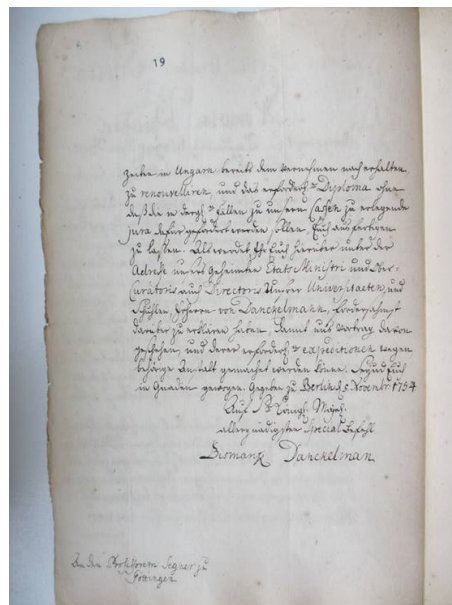 19
zeither in Ungarn bereits dem Vernehmen nach erhalten,
zu renouvelliren, und das erforderl. Diploma ohne
daß die in dergl. Fällen zu unsern Cassen zu erlegende
jura dafür gefordert werden sollen, Euch ausfertigen
zu laßen. Als werdet Ihr Euch hierüber unter der
Adresse unsers Geheimten Etats Ministri und Ober-
Curatoris auch Directoris Unsrer Universitaeten, und
Schuhlen, Freyherrn von Danckelmann, fordersahmst
darüber zu erklären haben, damit uns Vortrag davon
geschehen, und derer erforderl. expeditionen wegen
behörige Anstalt gemachet werden könne. Seynd Euch
in Gnaden gewogen. Gegeben zu Berlin d. 5 Novembr. 1754
Auf Sr. Königl. Majest.
allergnädigsten Special Befehl
Bismarck Danckelman
An den Professorem Segner zu
Göttingen